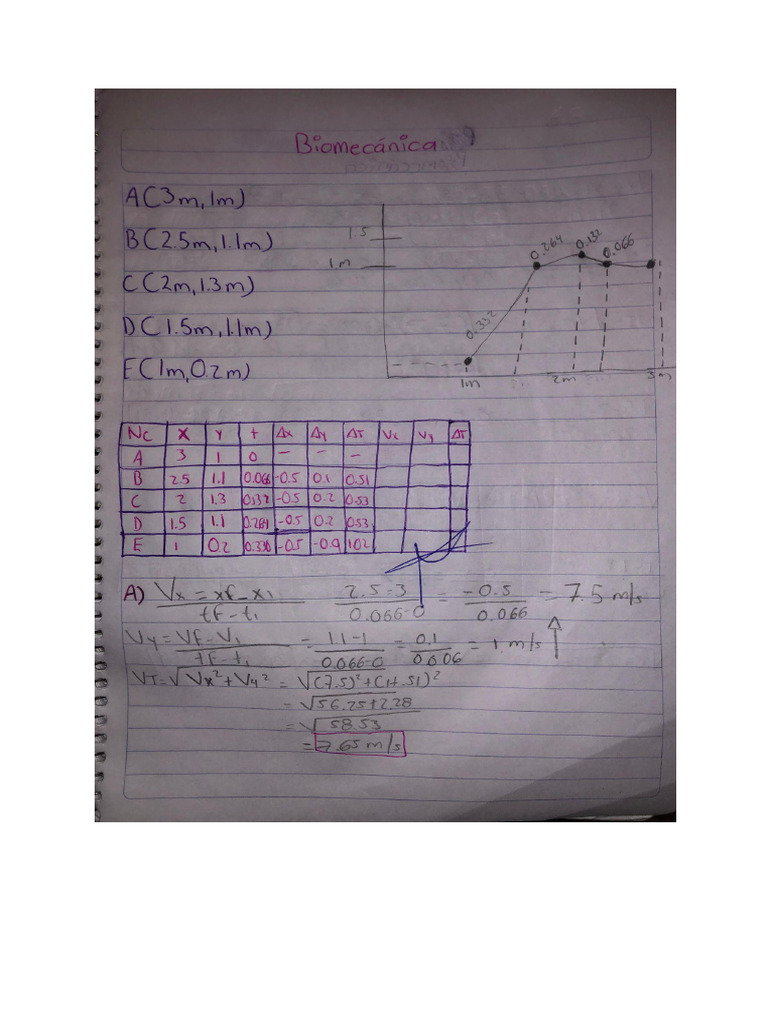 Biomecánica
A(3m,1m)
B(2.5m,1.1m)
C(2m,1.3m)
D(1.5m,1.1m)
E(1m,0.2m)
1.5
1.m
0.332
0.264
0.132
0.066
1m
2m
3m
Nc X Y t Δx Δy ΔT Vx Vy ΔT
A 3 1 0 - - -
B 2.5 1.1 0.066 -0.5 0.1 0.51
C 2 1.3 0.132 -0.5 0.2 0.53
D 1.5 1.1 0.264 -0.5 0.2 0.53
E 1 0.2 0.330 -0.5 -0.9 1.02
A) Vx = xf-x1 / tf-t1 2.5-3 / 0.066-0 = -0.5 / 0.066 = 7.5 m/s
Vy = Vf-V1 / tf-t1 = 1.1-1 / 0.066-0 = 0.1 / 0.006 = 1. m/s
VT=√Vx²+Vy² = √(7.5)²+(1.51)²
= √56.25+2.28
= √58.53
= 7.65 m/s